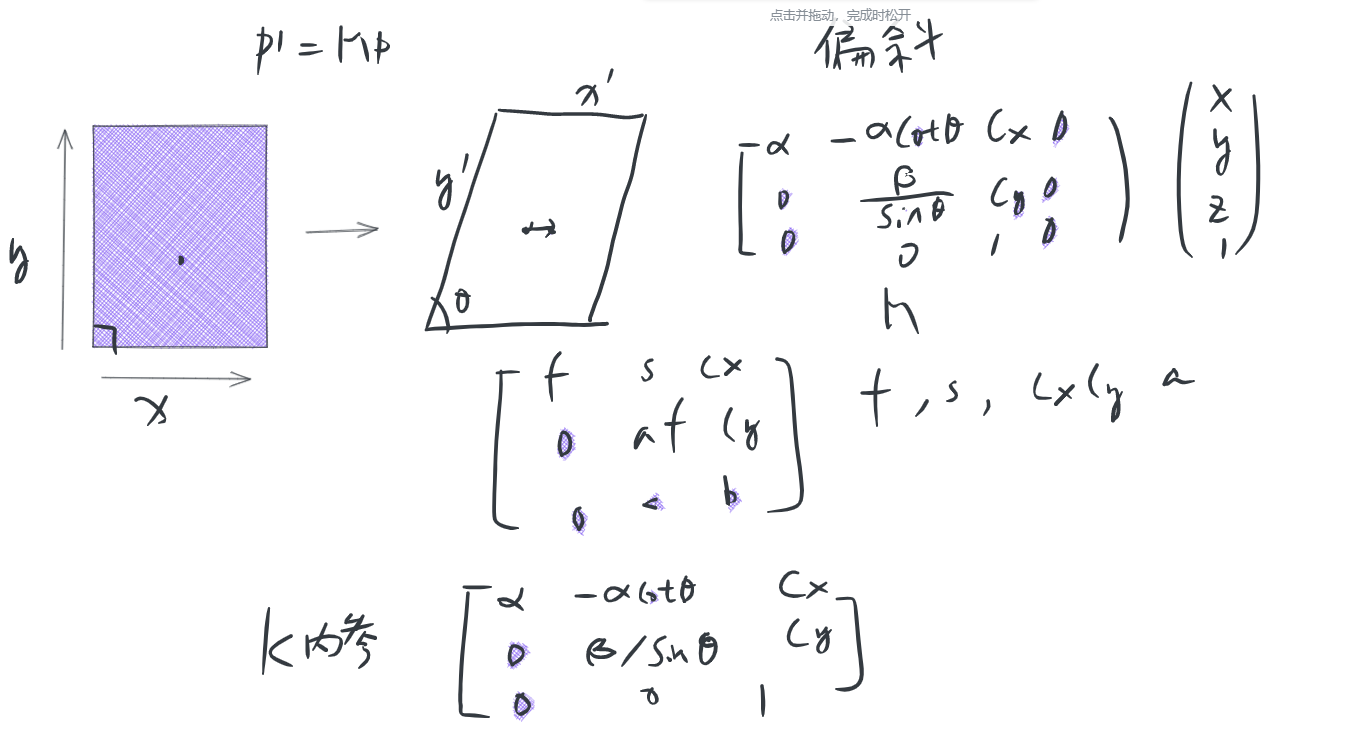 点击并拖动，完成时松开
p' = Mp
偏斜
x'
y'
θ
y
x
α -αcotθ Cx 0
0 β/sinθ Cy 0
0 0 1 0
x
y
z
1
M
f s Cx
0 af Cy
0
f , s , Cx Cy a
K内参
α -αcotθ Cx
0 β/sinθ Cy
0 0 1